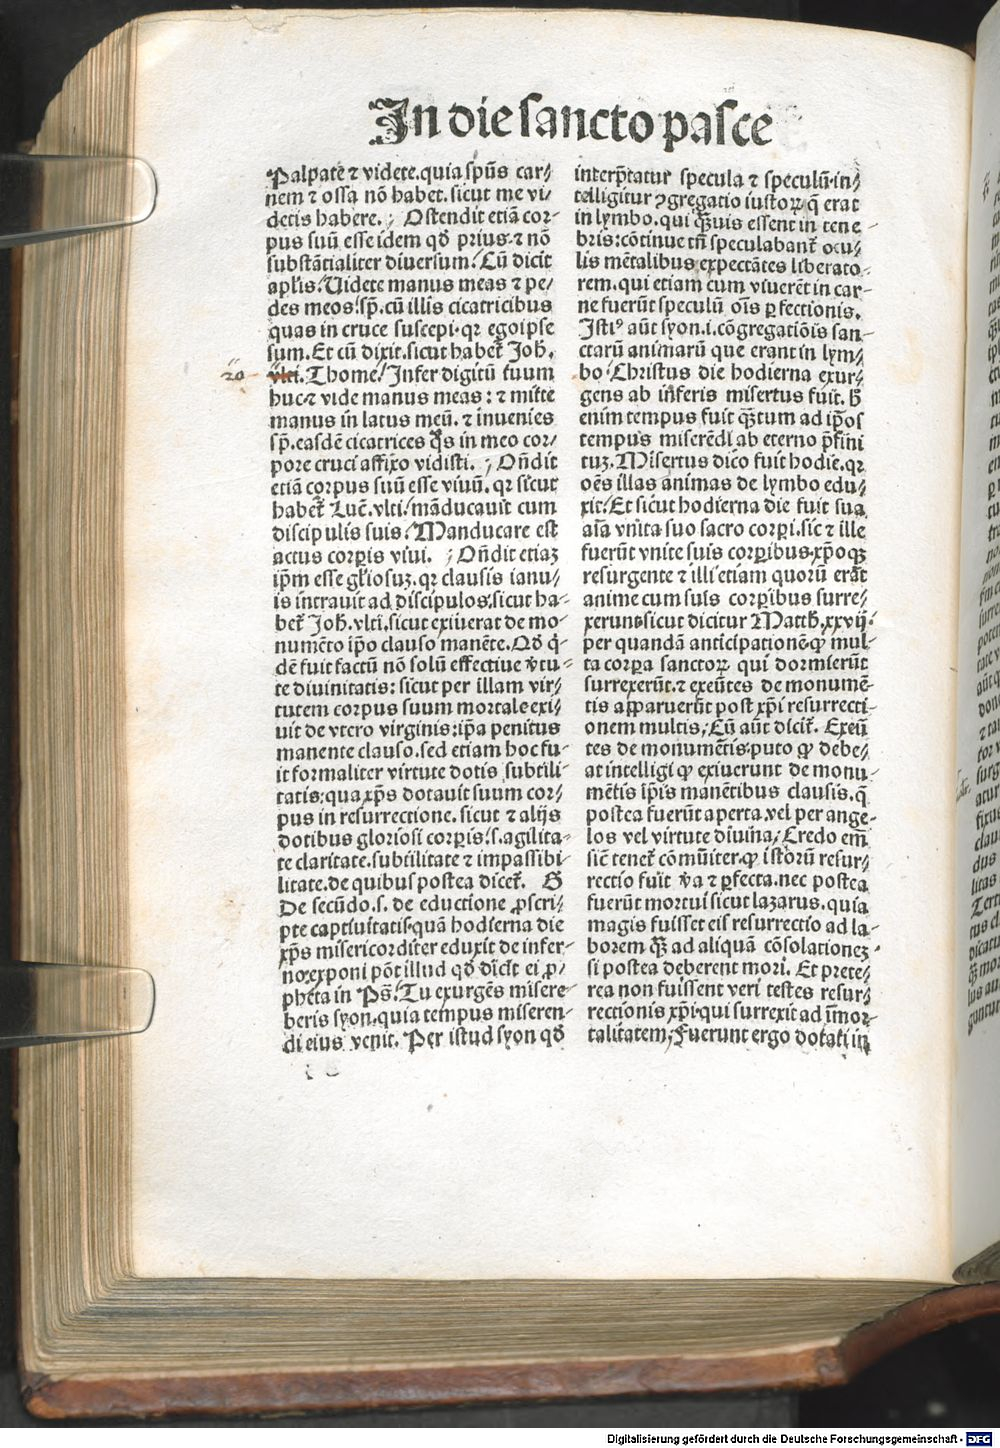 In die sancto pasce
Palpate ⁊ videte.quia spūs car⸗
nem ⁊ ossa nō habet.sicut me vi⸗
detis habere. ; Ostendit etiā cor⸗
pus suū esse idem qď prius.⁊ nō
substātialiter diuersum/ Cū dicit
aplis/ Videte manus meas ⁊ pe⸗
des meos/ sꝑ. cū illis cicatricibus
quas in cruce suscepi.qꝛ ego ipse
sum. Et cū dixit.sicut habet᷑ Joh̄.
20 vlti. Thome/ Infer digitū tuum
huc.⁊ vide manus meas : ⁊ mitte
manus in latus meū. ⁊ inuenies
sꝑ.easdē cicatrices q̄s in meo cor⸗
pore cruci affixo vidisti. ; Oñdit
etiā corpus suū esse viuū. qꝛ sicut
habet᷑ Luc̄. vlti/ māducauit cum
discipulis suis/ Manducare est
actus corꝑis viui. ; Oñdit etiaꝫ
ip̄m esse gl̄iosuꝫ. qꝛ clausis ianu⸗
is intrauit ad discipulos.sicut ha⸗
bet᷑ Joh̄. vlti.sicut exiuerat de mo⸗
numēto ip̄o clauso manēte. Qď q⸗
dē fuit factū nō solū effectiue v̓tu⸗
te diuinitatis: sicut per illam vir⸗
tutem corpus suum mortale exi⸗
uit de vtero virginis:ip̄a penitus
manente clauso.sed etiam hoc fu⸗
it formaliter virtute dotis subtili⸗
tatis:qua xp̄s dotauit suum cor⸗
pus in resurrectione. sicut ⁊ alijs
dotibus gloriosi corꝑis/.s.agilita⸗
te claritate.subtilitate ⁊ impassibi⸗
litate.de quibus postea dicet᷑. B
De secūdo.s. de eductione ꝓscri⸗
pte captiuitatis.quā hodierna die
xp̄s misericorditer eduxit de infer⸗
no.exponi pōt illud qď dīcit ei ꝓ⸗
pheta in Ps̄/ Tu exurgēs misere⸗
beris syon.quia tempus miseren⸗
di eius venit. Per istud syon qď
interp̄tatur specula ⁊ speculū.in⸗
telligitur ꝯgregatio iustoꝝ q̄ erat
in lymbo.qui q̄uis essent in tene
bris:cōtinue tn̄ speculabant᷑ ocu⸗
lis mētalibus expectātes liberato⸗
rem. qui etiam cum viuerēt in car⸗
ne fuerūt speculū oīs ꝑfectionis.
Istiꝰ aūt syon.i.cōgregatiōis san⸗
ctarū animarū que erant in lym⸗
bo/ Christus die hodierna exur⸗
gens ab inferis misertus fuit. h̄
enim tempus fuit q̄tum ad ip̄os
tempus miserēdi ab eterno p̄fini
tuꝫ. Misertus dico fuit hodie.qꝛ
oēs illas animas de lymbo edu⸗
xit/ Et sicut hodierna die fuit sua
aīa vnita suo sacro corꝑi.sic ⁊ ille
fuerūt vnite suis corꝑibus.xp̄oqꝫ
resurgente ⁊ illi etiam quorū erāt
anime cum suis corꝑibus surre⸗
xerunt.sicut dicitur Matth̄. xxvij.
per quandā anticipationē.ꝙ mul⸗
ta corꝑa sanctoꝝ qui dormierūt
surrexerūt.⁊ exeūtes de monumē⸗
tis apparuerūt post xp̄i resurrecti⸗
onem multis/ Cū aūt dicit᷑. Exeū
tes de monumētis.puto ꝙ debe⸗
at intelligi ꝙ exiuerunt de monu⸗
mētis ip̄is manētibus clausis.q̄
postea fuerūt aperta.vel per ange⸗
los vel virtute diuina/ Credo em̄
sic̄ tenet᷑ cōmūiter.ꝙ istorū resur⸗
rectio fuit v̓a ⁊ ꝑfecta.nec postea
fuerūt mortui sicut lazarus.quia
magis fuisset eis resurrectio ad la⸗
borem q̄ ad aliquā cōsolationeꝫ.
si postea deberent mori. Et prete⸗
rea non fuissent veri testes resur⸗
rectionis xp̄i.qui surrexit ad īmor⸗
talitatem/ Fuerunt ergo dotati in
Digitalisierung gefördert durch die Deutsche Forschungsgemeinschaft - DFG